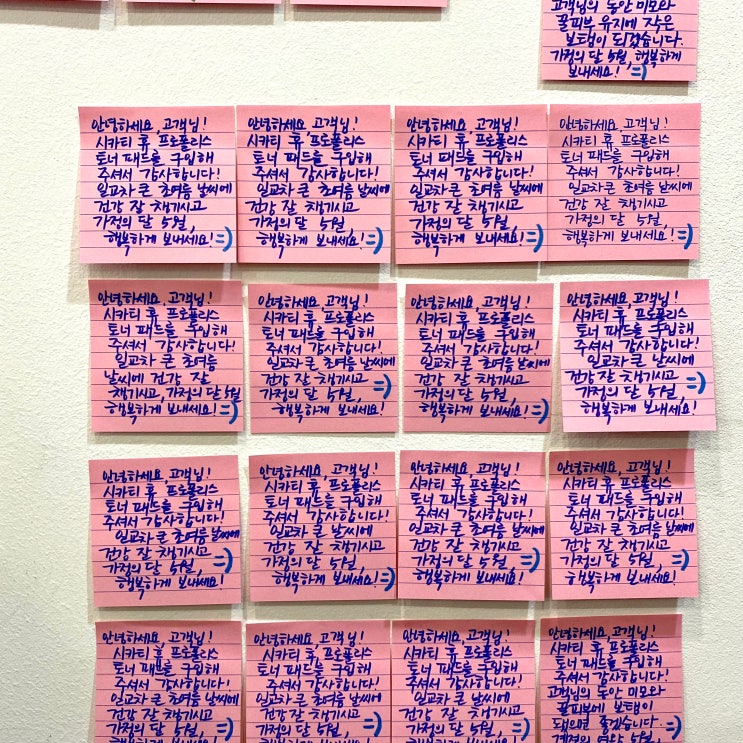 고객님의 동안 미모와
꿀피부 유지에 작은
보탬이 되겠습니다.
가정의 달 5월, 행복하게
보내세요! =)
안녕하세요, 고객님!
시카티 휴 프로폴리스
토너 패드를 구입해
주셔서 감사합니다!
일교차 큰 초여름 날씨에
건강 잘 챙기시고
가정의 달 5월,
행복하게 보내세요! =)
안녕하세요, 고객님!
시카티 휴 프로폴리스
토너 패드를 구입해
주셔서 감사합니다!
일교차 큰 초여름 날씨에
건강 잘 챙기시고
가정의 달 5월,
행복하게 보내세요! =)
안녕하세요, 고객님!
시카티 휴 프로폴리스
토너 패드를 구입해
주셔서 감사합니다!
일교차 큰 초여름 날씨에
건강 잘 챙기시고
가정의 달 5월,
행복하게 보내세요! =)
안녕하세요, 고객님!
시카티 휴 프로폴리스
토너 패드를 구입해
주셔서 감사합니다!
일교차 큰 초여름 날씨에
건강 잘 챙기시고
가정의 달 5월,
행복하게 보내세요! =)
안녕하세요, 고객님!
시카티 휴 프로폴리스
토너 패드를 구입해
주셔서 감사합니다!
일교차 큰 초여름
날씨에 건강 잘
챙기시고, 가정의 달 5월
행복하게 보내세요! =)
안녕하세요, 고객님!
시카티 휴 프로폴리스
토너 패드를 구입해
주셔서 감사합니다!
일교차 큰 초여름 날씨에
건강 잘 챙기시고 =)
가정의 달 5월,
행복하게 보내세요!
안녕하세요, 고객님!
시카티 휴 프로폴리스
토너 패드를 구입해
주셔서 감사합니다!
일교차 큰 초여름 날씨에
건강 잘 챙기시고
가정의 달 5월,
행복하게 보내세요! =)
안녕하세요, 고객님!
시카티 휴 프로폴리스
토너 패드를 구입해
주셔서 감사합니다!
일교차 큰 날씨에
건강 잘 챙기시고 =)
가정의 달 5월,
행복하게 보내세요!
안녕하세요, 고객님!
시카티 휴 프로폴리스
토너 패드를 구입해
주셔서 감사합니다!
일교차 큰 초여름 날씨에
건강 잘 챙기시고
가정의 달 5월, =)
행복하게 보내세요!
안녕하세요, 고객님!
시카티 휴 프로폴리스
토너 패드를 구입해
주셔서 감사합니다!
일교차 큰 날씨에
건강 잘 챙기시고
가정의 달 5월,
행복하게 보내세요! =)
안녕하세요, 고객님!
시카티 휴 프로폴리스
토너 패드를 구입해
주셔서 감사합니다!
일교차 큰 초여름 날씨에
건강 잘 챙기시고
가정의 달 5월, =)
행복하게 보내세요!
안녕하세요, 고객님!
시카티 휴 프로폴리스
토너 패드를 구입해
주셔서 감사합니다!
일교차 큰 초여름 날씨에
건강 잘 챙기시고
가정의 달 5월, =)
행복하게 보내세요!
안녕하세요, 고객님!
시카티 휴 프로폴리스
토너 패드를 구입해
주셔서 감사합니다!
일교차 큰 초여름 날씨에
건강 잘 챙기시고
가정의 달 5월, =)
안녕하세요, 고객님!
시카티 휴 프로폴리스
토너 패드를 구입해
주셔서 감사합니다!
일교차 큰 초여름 날씨에
건강 잘 챙기시고
가정의 달 5월, =)
안녕하세요, 고객님!
시카티 휴 프로폴리스
토너 패드를 구입해
주셔서 감사합니다!
일교차 큰 날씨에
건강 잘 챙기시고
가정의 달 5월, =)
안녕하세요, 고객님!
시카티 휴 프로폴리스
토너 패드를 구입해
주셔서 감사합니다!
고객님의 동안 미모와
꿀피부에 보탬이
됐으면 좋겠습니다. =)